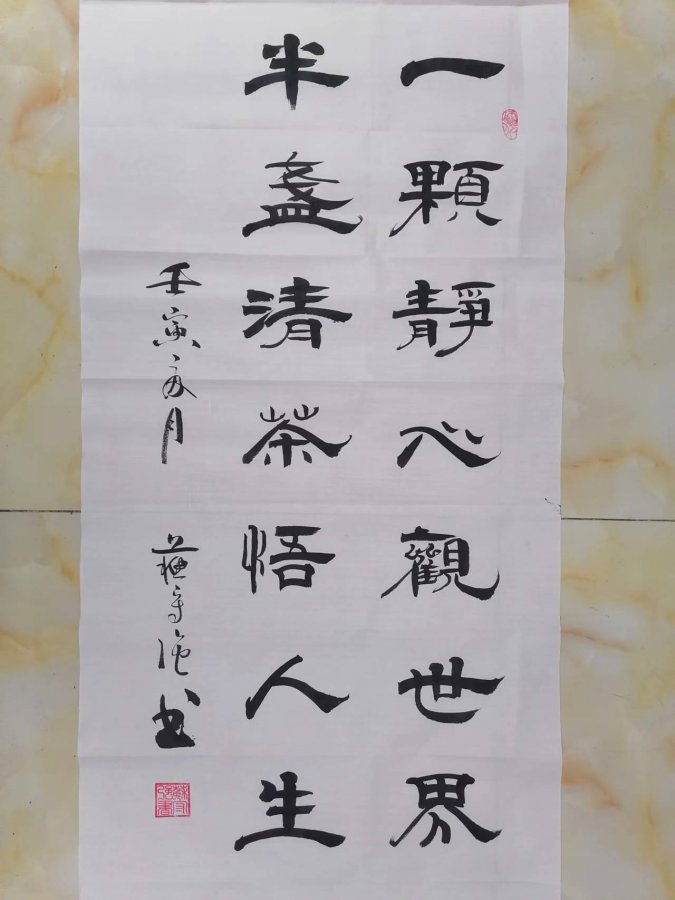 一顆靜心觀世界
半盞清茶悟人生
壬寅夏月
書